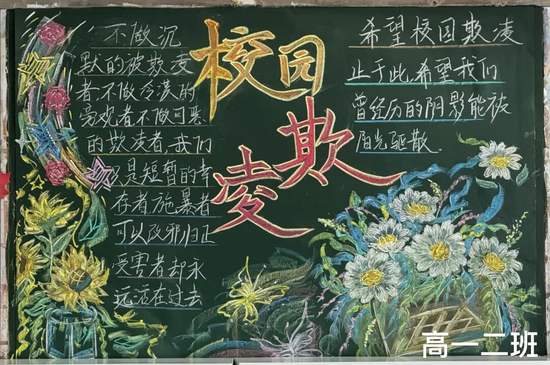 不做沉
默的被欺凌
者不做冷漠的
旁观者不做可悲
的欺凌者,我们
只是短暂的幸
存者施暴者
可以改邪归正
受害者却永
远活在过去
校园
欺
凌
希望校园欺凌
止于此,希望我们
曾经历的阴影能被
阳光驱散.
高一二班